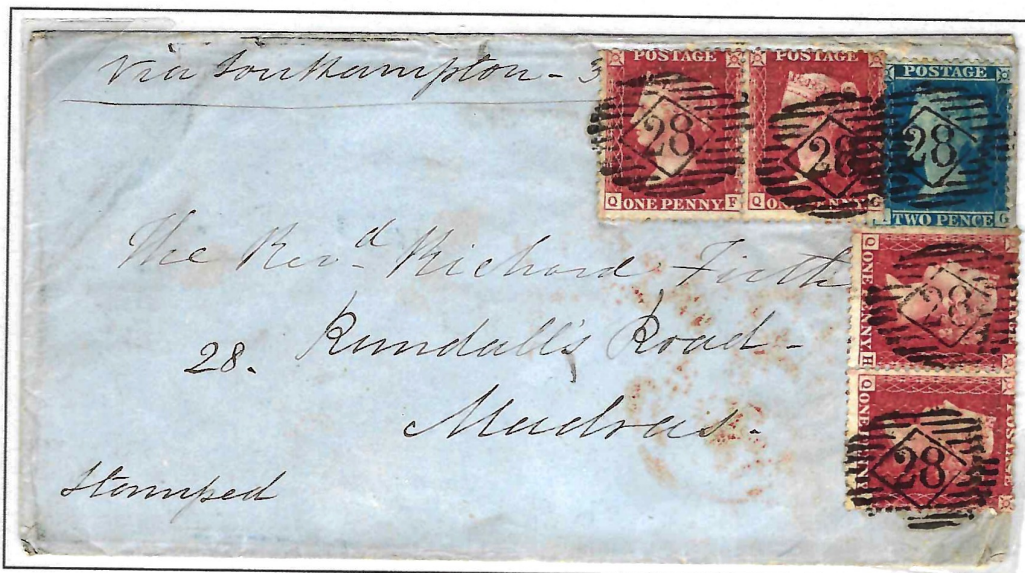 Via Southampton - 3
POSTAGE
28
Q ONE PENNY F
POSTAGE
28
Q ONE PENNY G
POSTAGE
28
TWO PENCE G
Q ONE PENNY H
28
Q ONE PENNY
28
The Rev.d Richard Firth
28. Rundall's Road -
Madras.
Stamped